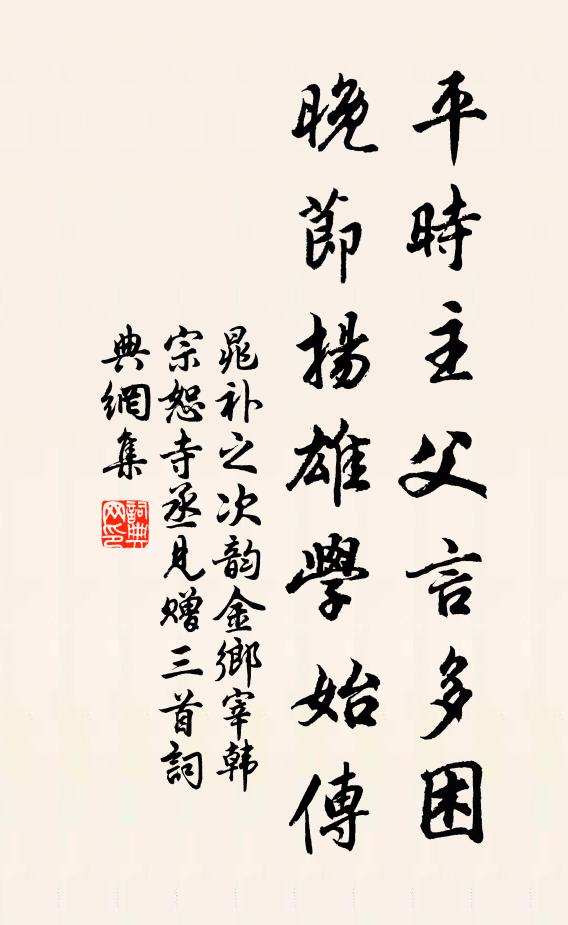 平時主父言多困
晚節揚雄學始傳
晁补之次韵金鄉宰韩
宗恕寺丞見赠三首詞
典網集
詞典网印